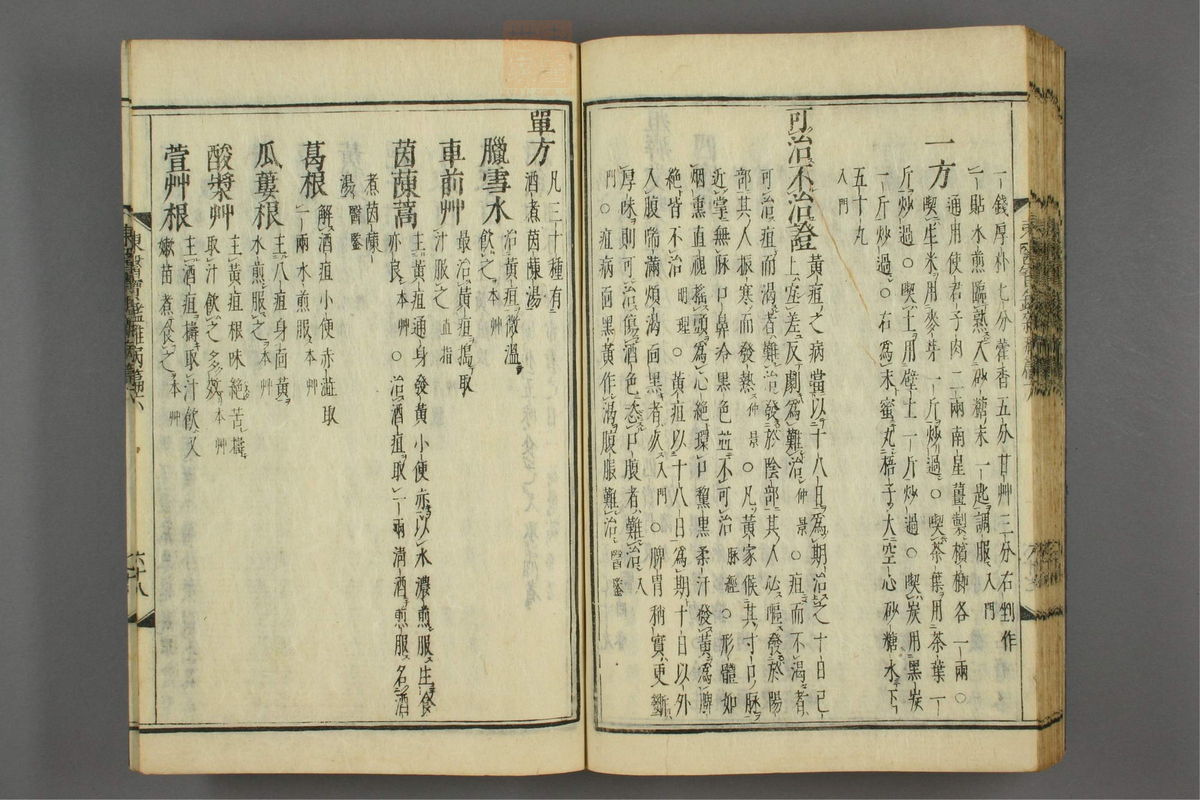 一錢厚朴七分藿香五分甘艸三分右剉作
一貼水煎臨熟入砂糖末一匙調服入門
一方通用使君子肉二兩南星薑製檳榔各一兩○
喫生米用麥芽一斤炒過○喫茶葉用茶葉一
斤炒過○喫土用壁土一斤炒過○喫炭用黑炭
一斤炒過○右爲末蜜丸梧子大空心砂糖水下
五十丸入門
可治不治證黃疸之病當以十八日爲期治之十日已
上宜差反劇爲難治仲景○疸而不渴者
可治疸而渴者難治發於陰部其人必嘔發於陽
部其人振寒而發熱仲景○凡黃家候其寸口脉
近掌無脉口鼻冷黑色並不可治脉經○形體如
烟熏直視搖頭爲心絶環口黧黑柔汗發黃爲脾
絶皆不治明理○黃疸以十八日爲期十日以外
入腹喘滿煩渴面黑者死入門○脾胃稍實更斷
厚味則可治傷酒色恣口腹者難治入
門○疸病面黑黃作渴腹脹難治醫鑒
單方凡三十種有
酒煮茵蔯湯
臘雪水治黃疸微溫
飮之本艸
車前艸最治黃疸搗取
汁服之直指
茵蔯蒿主黃疸通身發黃小便赤以水濃煎服生食
亦良本艸○治酒疸取一兩淸酒煎服名酒
煮茵蔯
湯醫鑒
葛根解酒疸小便赤澁取
一兩水煎服本艸
瓜蔞根主八疸身面黃
水煎服之本艸
酸漿艸主黃疸根味絶苦擣
取汁飮之多效本艸
萱艸根主酒疸擣取汁飮又
嫩苗煮食之本艸
東醫寶鑑雜病篇六
六十八